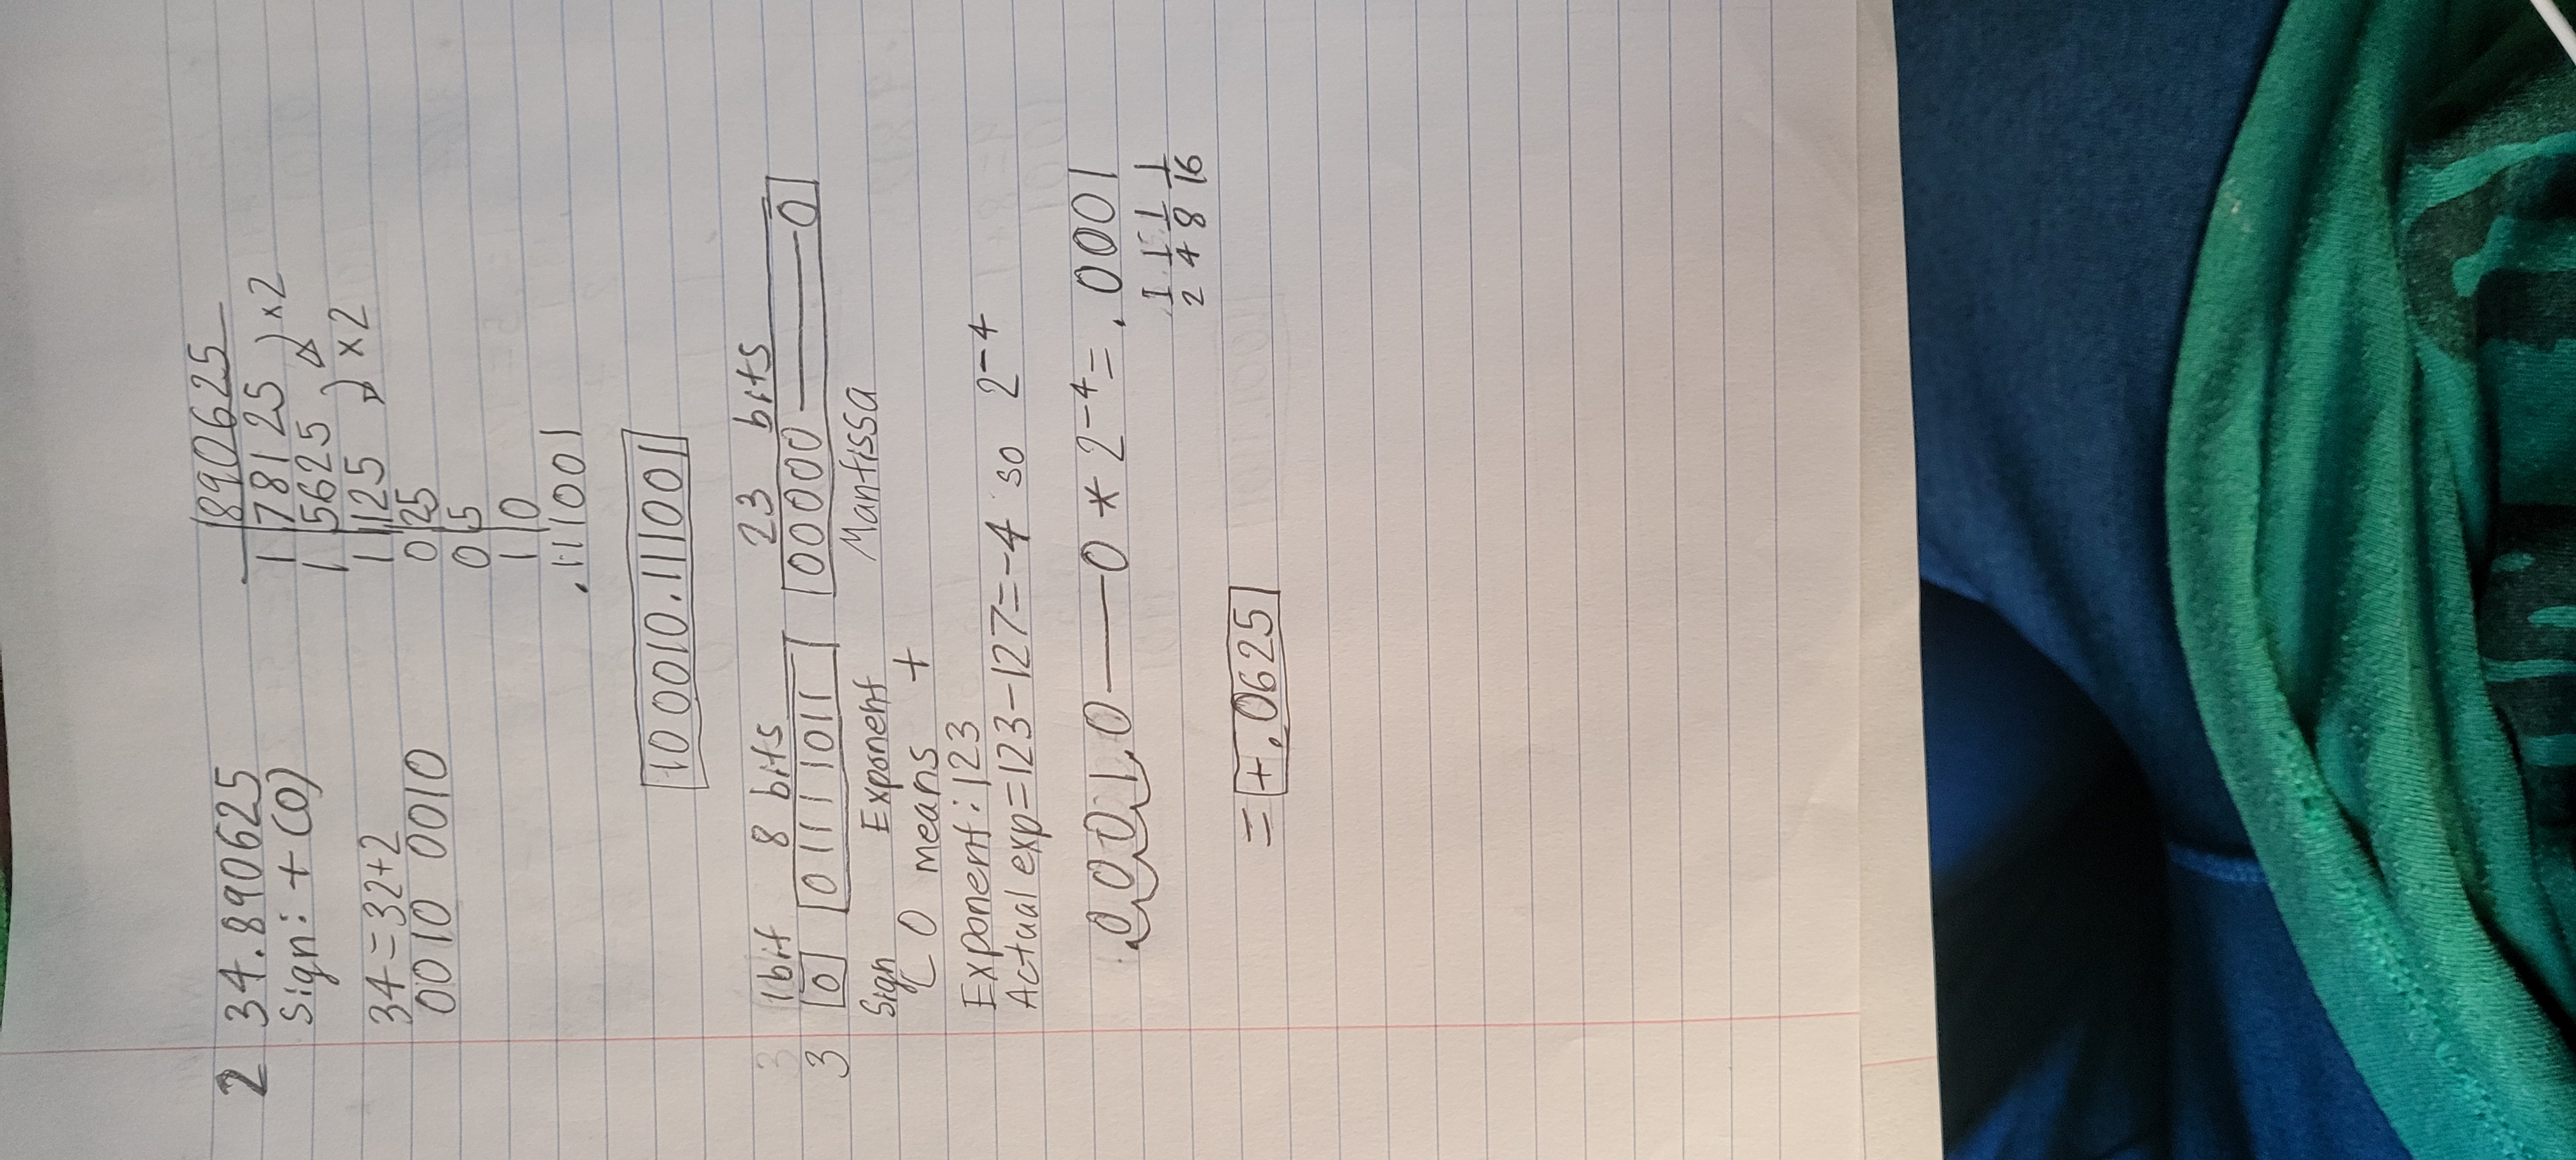 2 34.890625
Sign: + (0)
34=32+2
0010 0010
890625
1 78125 ×2
1 5625
1 125 ×2
0 25
0 5
1 0
.111001
100010.111001
3 1bit 8 bits 23 bits
3 0 01111011 00000——0
Sign Exponent Mantissa
0 means +
Exponent: 123
Actual exp=123-127=-4 so 2⁻⁴
.0001.0——0 * 2⁻⁴= .0001
1/2 1/4 1/8 1/16
= +.0625